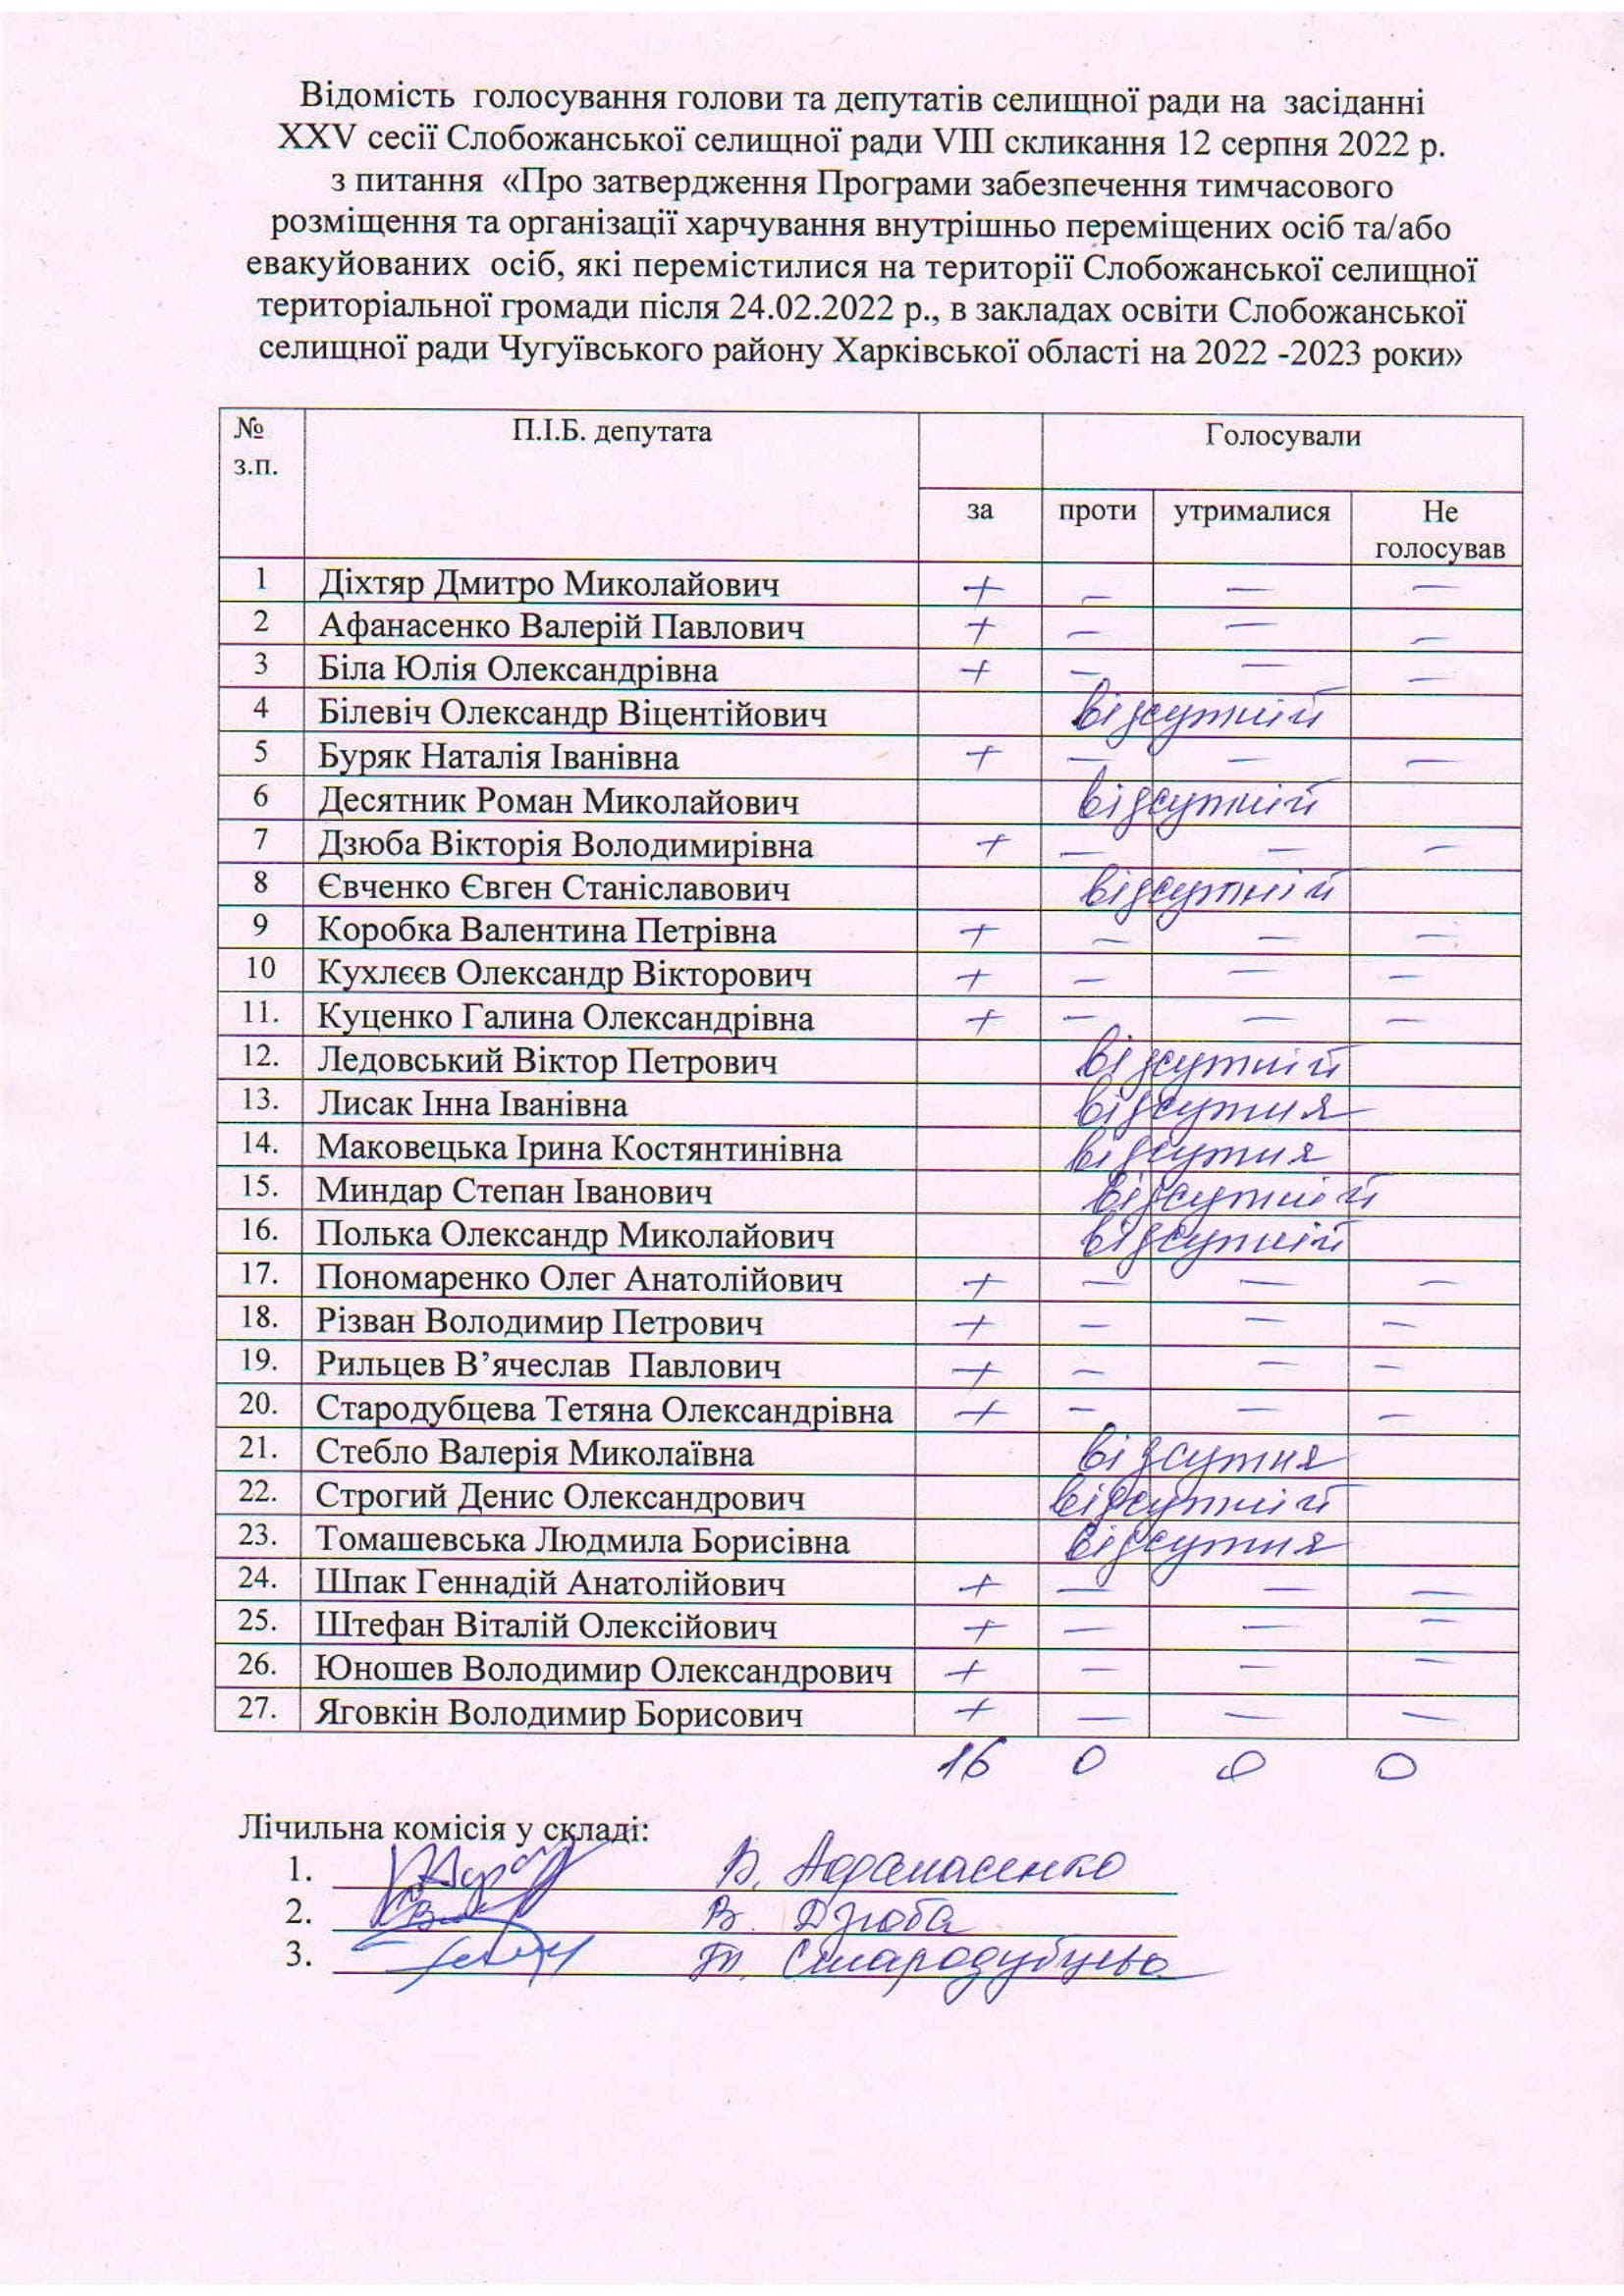 Відомість голосування голови та депутатів селищної ради на засіданні
XXV сесії Слобожанської селищної ради VIII скликання 12 серпня 2022 р.
з питання «Про затвердження Програми забезпечення тимчасового
розміщення та організації харчування внутрішньо переміщених осіб та/або
евакуйованих осіб, які перемістилися на території Слобожанської селищної
територіальної громади після 24.02.2022 р., в закладах освіти Слобожанської
селищної ради Чугуївського району Харківської області на 2022 -2023 роки»
№ П.І.Б. депутата Голосували
з.п.
за проти утрималися Не
голосував
1 Діхтяр Дмитро Миколайович + – – –
2 Афанасенко Валерій Павлович + – – –
3 Біла Юлія Олександрівна + – – –
4 Білевіч Олександр Віцентійович відсутній
5 Буряк Наталія Іванівна + – – –
6 Десятник Роман Миколайович відсутній
7 Дзюба Вікторія Володимирівна + – – –
8 Євченко Євген Станіславович відсутній
9 Коробка Валентина Петрівна + – – –
10 Кухлєєв Олександр Вікторович + – – –
11. Куценко Галина Олександрівна + – – –
12. Ледовський Віктор Петрович відсутній
13. Лисак Інна Іванівна відсутня
14. Маковецька Ірина Костянтинівна відсутня
15. Миндар Степан Іванович відсутній
16. Полька Олександр Миколайович відсутній
17. Пономаренко Олег Анатолійович + – – –
18. Різван Володимир Петрович + – – –
19. Рильцев В’ячеслав Павлович + – – –
20. Стародубцева Тетяна Олександрівна + – – –
21. Стебло Валерія Миколаївна відсутня
22. Строгий Денис Олександрович відсутній
23. Томашевська Людмила Борисівна відсутня
24. Шпак Геннадій Анатолійович + – – –
25. Штефан Віталій Олексійович + – – –
26. Юношев Володимир Олександрович + – – –
27. Яговкін Володимир Борисович + – – –
16 0 0 0
Лічильна комісія у складі:
1. В. Афанасенко
2. В. Дзюба
3. Т. Стародубцева